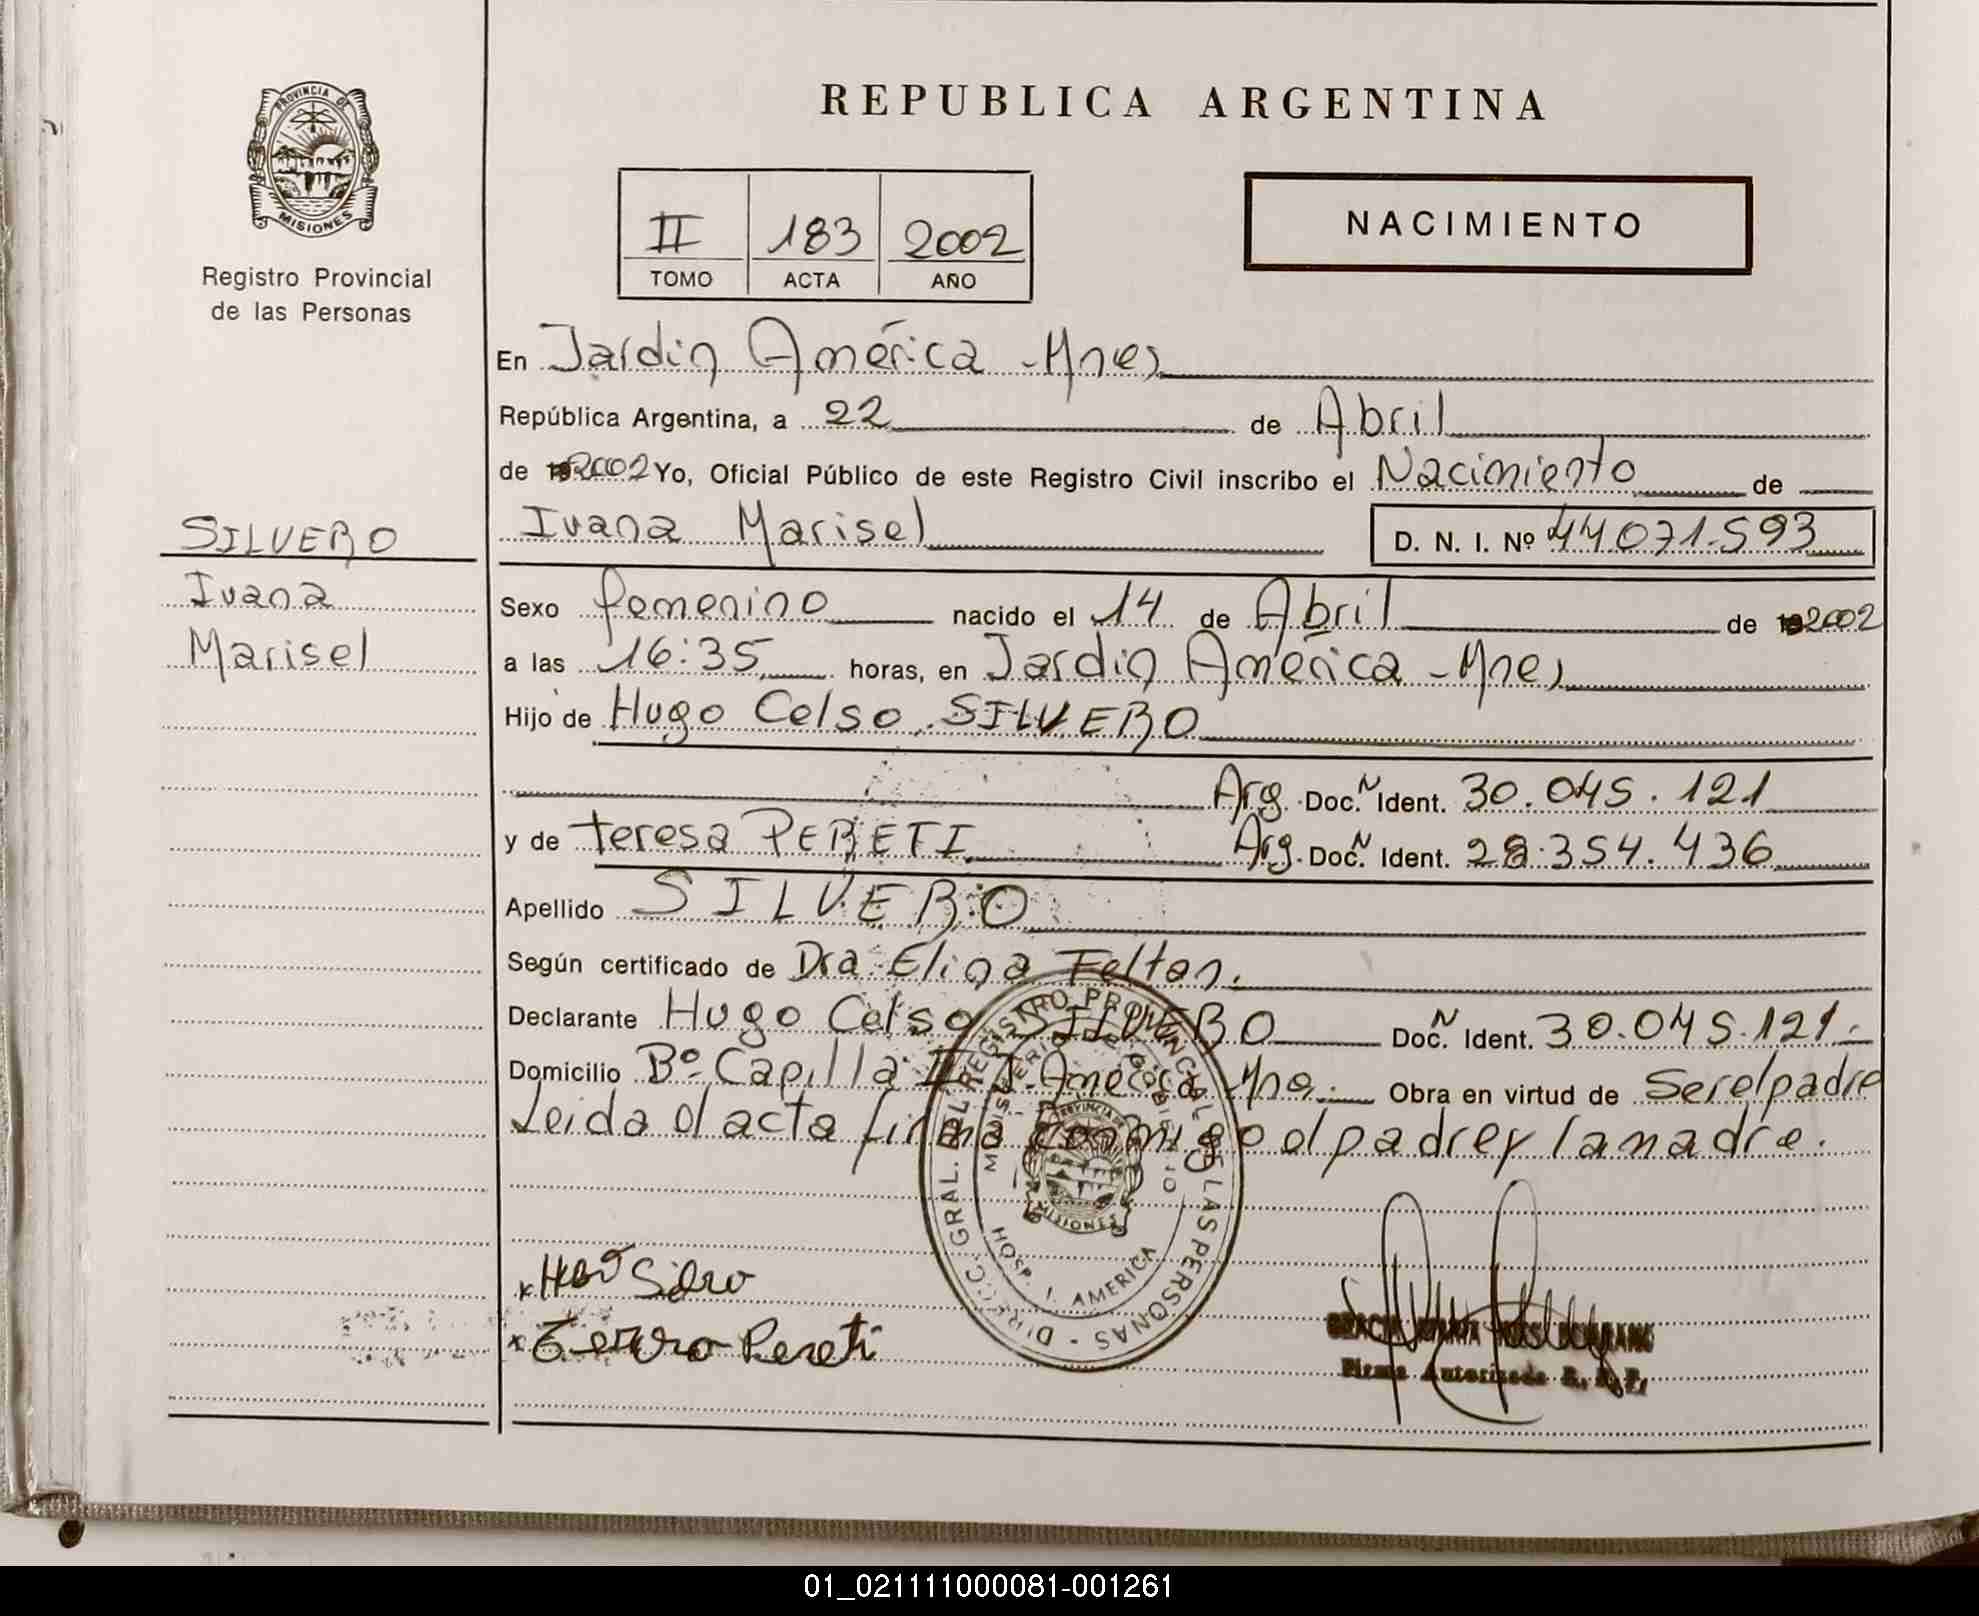 REPUBLICA ARGENTINA
PROVINCIA DE
MISIONES
Registro Provincial
de las Personas
II 183 2002
TOMO ACTA AÑO
NACIMIENTO
En Jardín América - Mnes
República Argentina, a 22 de Abril
de 2002 Yo, Oficial Público de este Registro Civil inscribo el Nacimiento de
Ivana Marisel D. N. I. Nº 44071.593
SILVERO
Ivana
Marisel
Sexo femenino nacido el 14 de Abril de 2002
a las 16:35 horas, en Jardín América - Mnes
Hijo de Hugo Celso SILVERO
Arg. Doc. N Ident. 30.045.121
y de teresa PERETI Arg. Doc. N Ident. 28.354.436
Apellido SILVERO
Según certificado de Dra. Elina Feltan.
Declarante Hugo Celso SILVERO Doc. N Ident. 30.045.121.
Domicilio Bº Capilla II J. América Mnes. Obra en virtud de Ser el padre
Leida el acta firma conmigo el padre y la madre.
DIRECC. GRAL. DEL REGISTRO PROVINCIAL DE LAS PERSONAS
MINISTERIO DE GOBIERNO
PROVINCIA
MISIONES
HOSP. J. AMERICA
x Silvero
x Pereti
Firma Autorizada R. P. P.
01_021111000081-001261